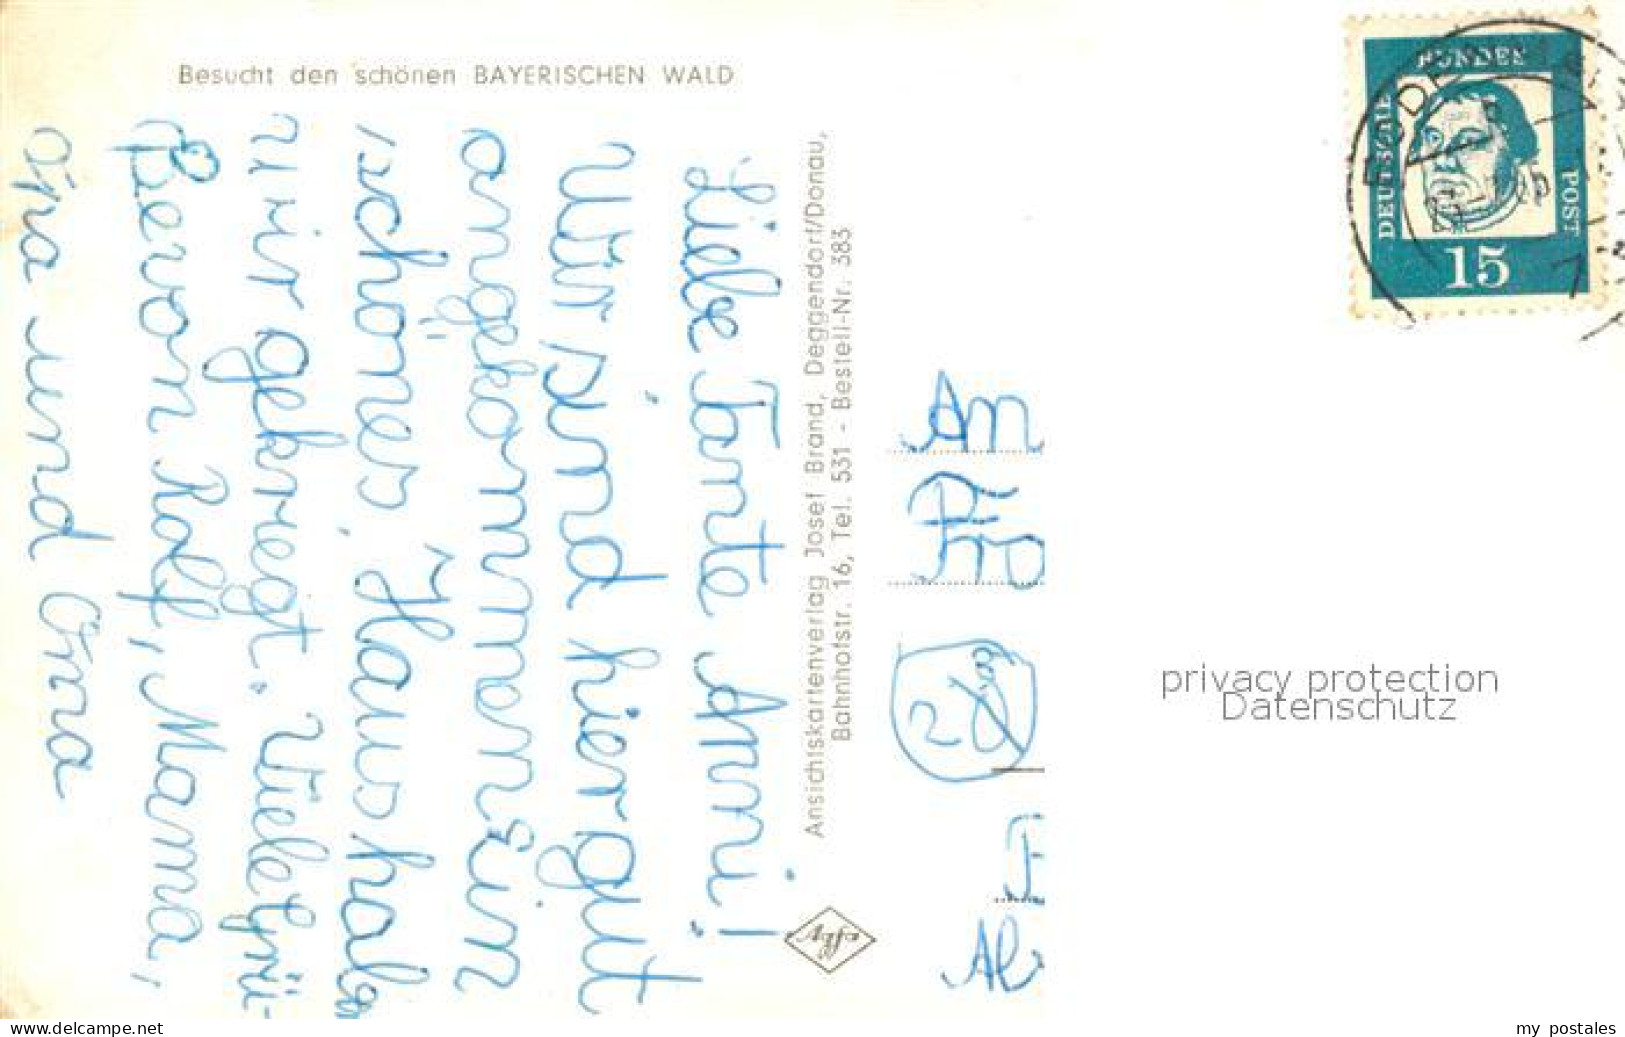 Besucht den schönen BAYERISCHEN WALD
Liebe Tante Anni!
Wir sind hier gut
angekommen. Ein
schönes Haus hab
wir gekriegt. Viele Grü-
ße von Rolf, Mama,
Opa und Oma
Ansichtskartenverlag Josef Brand, Deggendorf/Donau,
Bahnhofstr. 16, Tel. 531 - Bestell-Nr. 383
An
DEUTSCHE
BUNDES
POST
15
privacy protection
Datenschutz
www.delcampe.net
my postales